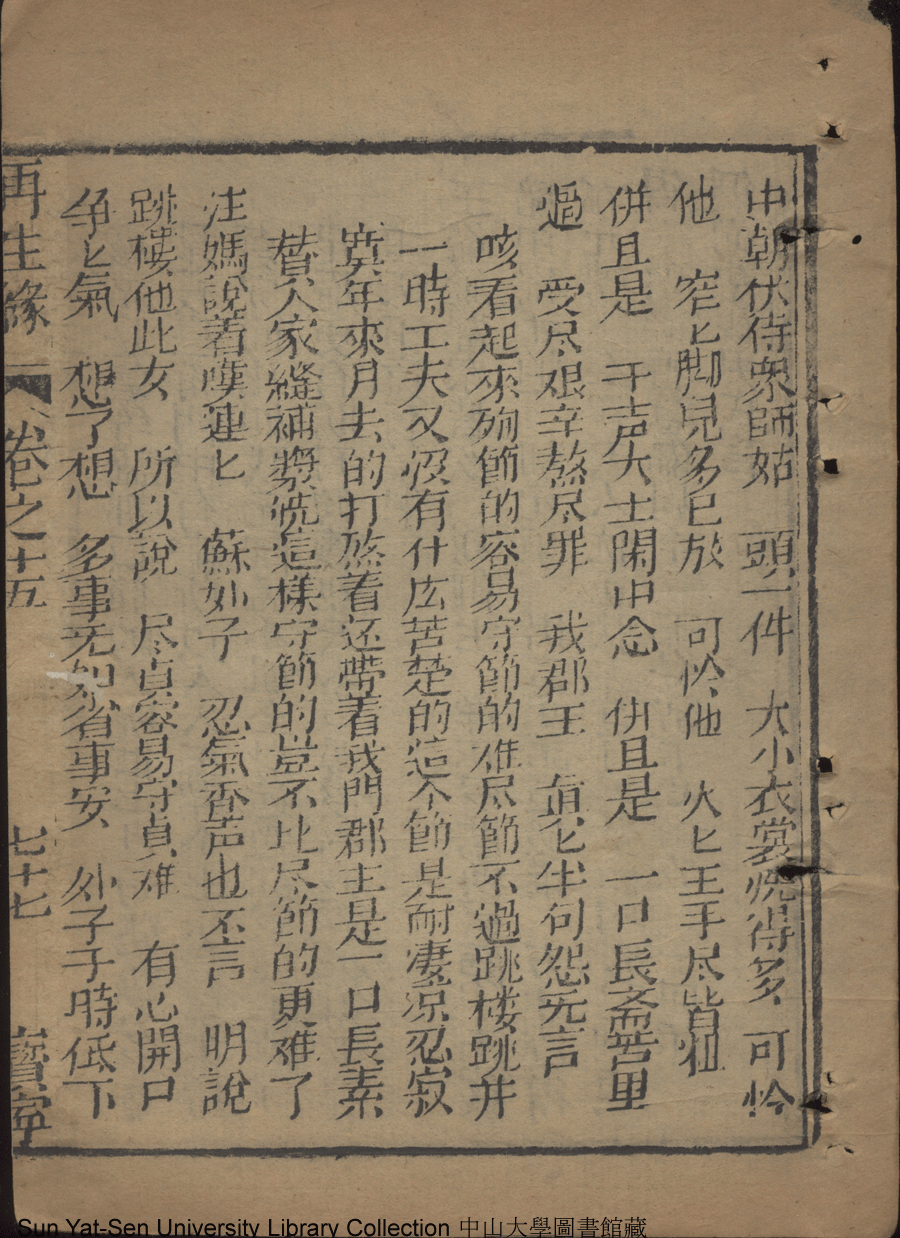 中朝伏侍衆師姑　頭一件　大小衣裳洗得多　可怜
他　窄匕脚兒多已放　可怜他　火匕玉手尽皆
併且是　千声大士閑中念　併且是　一口長斋苦里
過　受尽艰辛熬尽罪　我郡王　真匕半句怨无言
咳看起來殉節的容易守節的难尽節不過跳楼跳井
一時工夫又沒有什広苦楚的這个節是耐凄凉忍寂
寞年來月去的打熬着还帶着我門郡主是一口長素
替人家縫補漿洗這樣守節的豈不比尽節的更难了
汪媽說着嘆連匕　蘇妙子　忍氣吞声也不言　明說
跳樓他此女　所以說　尽貞容易守貞难　有心開口
争匕氣　想了想　多事无如省事安　妙子子時低下
再生緣　卷之十五　七十七　寳寧